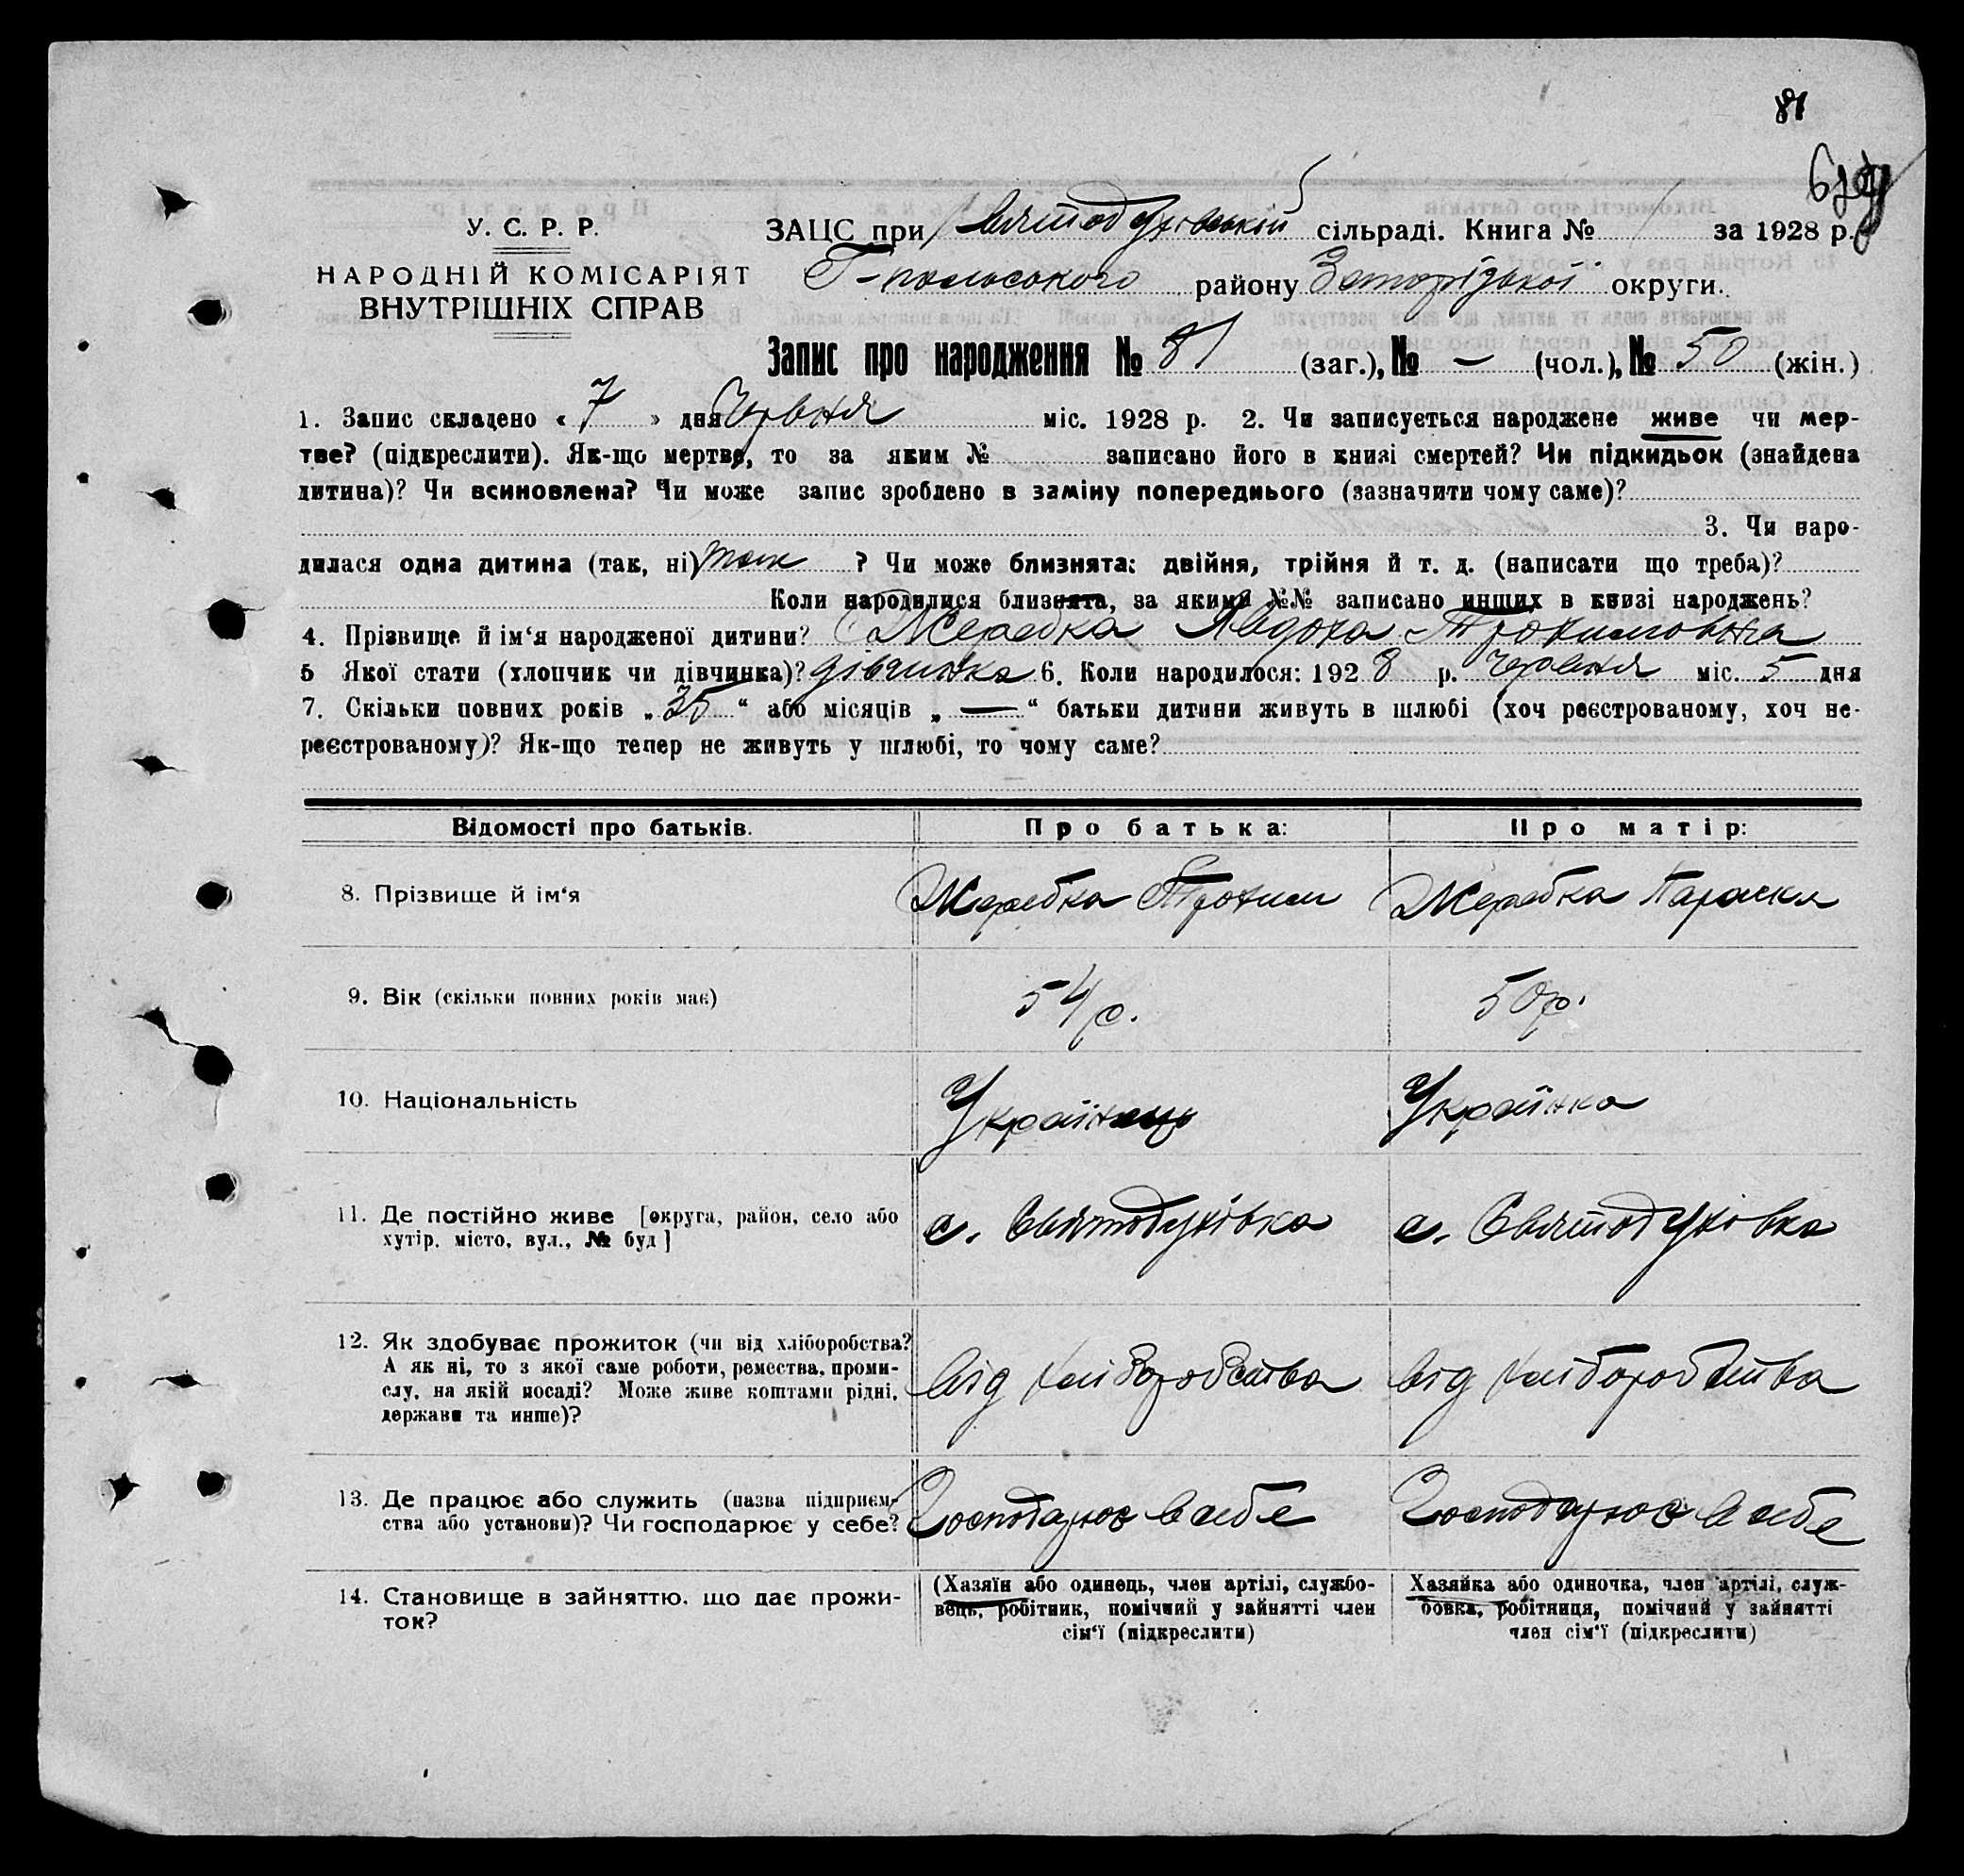 81
У. С. Р. Р.
НАРОДНІЙ КОМІСАРІЯТ
ВНУТРІШНІХ СПРАВ
ЗАЦС при Святодухівській сільраді. Книга № 1 за 1928 р.
Г-польського району Запорізької округи.
Запис про народження № 81 (заг.), № — (чол.), № 50 (жін.)
1. Запис складено « 7 » дня Червня міс. 1928 р. 2. Чи записується народжене живе чи мер-
тве? (підкреслити). Як-що мертве, то за яким № записано його в книзі смертей? Чи підкидьок (знайдена
дитина)? Чи всиновлена? Чи може запис зроблено в заміну попереднього (зазначити чому саме)?
3. Чи наро-
дилася одна дитина (так, ні) так ? Чи може близнята: двійня, трійня й т. д. (написати що треба)?
Коли народилися близнята, за якими №№ записано инших в книзі народжень?
4. Прізвище й ім‘я народженої дитини? Жеребка Явдоха Трохимовна
5 Якої стати (хлопчик чи дівчинка)? дівчинка 6. Коли народилося: 1928 р. червня міс. 5 дня
7. Скільки повних років „ 35 “ або місяців „ — “ батьки дитини живуть в шлюбі (хоч реєстрованому, хоч не-
реєстрованому)? Як-що тепер не живуть у шлюбі, то чому саме?
Відомості про батьків. Про батька: Про матір:
8. Прізвище й ім‘я Жеребка Трохим Жеребка Параска
9. Вік (скільки повних років має) 54 р. 50 р.
10. Національність Українець Українка
11. Де постійно живе [округа, район, село або
хутір, місто, вул., № буд] с. Святодухівка с. Святодухівка
12. Як здобуває прожиток (чи від хліборобства?
А як ні, то з якої саме роботи, ремества, проми-
слу, на якій посаді? Може живе коштами рідні,
держави та инше)? від хліборобства від хліборобства
13. Де працює або служить (назва підприєм-
ства або установи)? Чи господарює у себе? Господарює в себе Господарює в себе
14. Становище в зайняттю, що дає прожи-
ток?
(Хазяїн або одинець, член артілі, службо-
вець, робітник, помічний у зайнятті член
сім‘ї (підкреслити)
Хазяйка або одиночка, член артілі, служ-
бовка, робітниця, помічний у зайнятті
член сім‘ї (підкреслити)